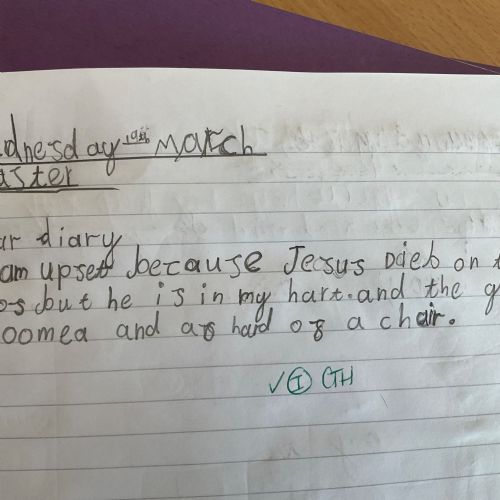 dnesday 19th March
aster
ar diary
am upset because Jesus Dieb on t
os but he is in my hart. and the g
oomea and as hard og a chair.
✓ I GTH